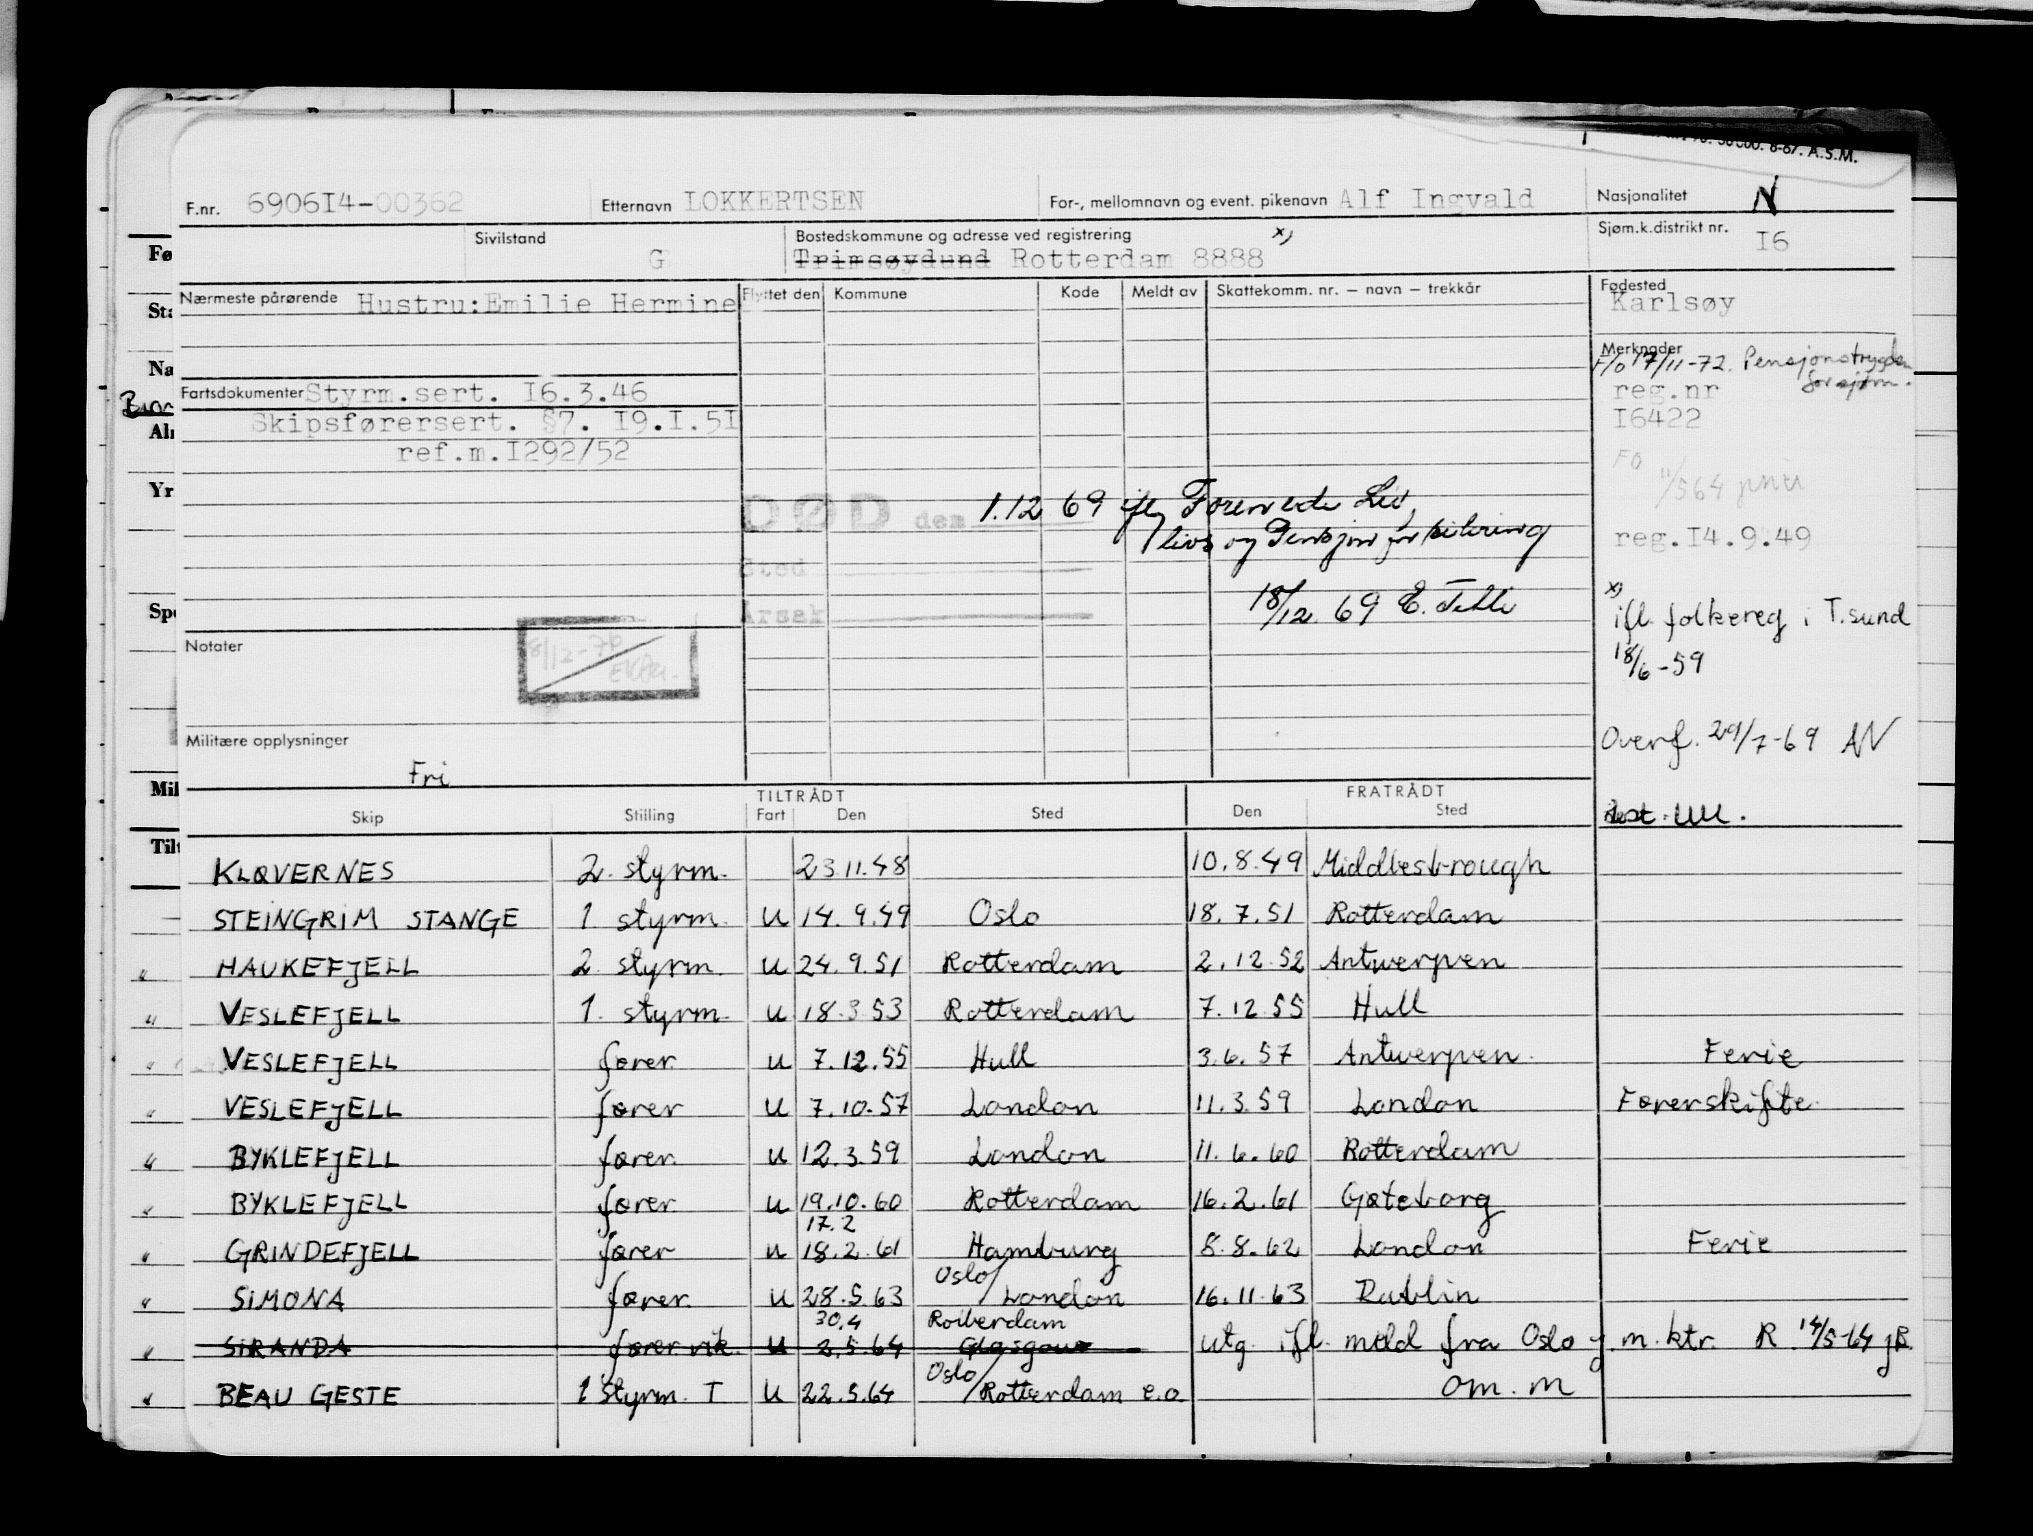 50 000. 8-67. A.S.M.
F.nr. 6906I4-00362 Etternavn LOKKERTSEN For-, mellomnavn og event. pikenavn Alf Ingvald Nasjonalitet N
Sivilstand G Bostedskommune og adresse ved registrering x) Sjøm.k.distrikt nr. I6
Trimsøydund Rotterdam 8888
Nærmeste pårørende Hustru:Emilie Hermine Flyttet den Kommune Kode Meldt av Skattekomm. nr. – navn – trekkår Fødested
Karlsøy
Merknader
F/o 17/11-72. Pensjonstrygden
for sjøm.
reg.nr
I6422
FO
11/5 64
reg.I4.9.49
x)
ifl. folkereg i T.sund
18/6-59
Overf. 29/7-69 AN
Fartsdokumenter Styrm.sert. I6.3.46
Skipsførersert. §7. I9.I.5I
ref.m.I292/52
DØD den 1.12 69 ifly Forenede Liv,
livs og Pensjonsforsikring
Sted
Årsak
18/12 69
Notater
18/12-76
Militære opplysninger
Fri
TILTRÅDT FRATRÅDT
Skip Stilling Fart Den Sted Den Sted
KLØVERNES 2. styrm. 23.11.48 10.8.49 Middlesbrough
STEINGRIM STANGE 1. styrm. U 14.9.49 Oslo 18.7.51 Rotterdam
" HAUKEFJELL 2. styrm. U 24.9.51 Rotterdam 2.12.52 Antwerpen
" VESLEFJELL 1. styrm. U 18.3.53 Rotterdam 7.12.55 Hull
" VESLEFJELL fører U 7.12.55 Hull 3.6.57 Antwerpen. Ferie
" VESLEFJELL fører U 7.10.57 London 11.3.59 London Førerskifte
" BYKLEFJELL fører U 12.3.59 London 11.6.60 Rotterdam
" BYKLEFJELL fører U 19.10.60 Rotterdam 16.2.61 Gøteborg
17.2
" GRINDEFJELL fører U 18.2.61 Hamburg 8.8.62 London Ferie
Oslo/
" SIMONA fører U 28.5.63 London 16.11.63 Dublin
30.4 Rotterdam
" SIRANDA fører vik. U 2.5.64 Glasgow utg. ifl. meld fra Oslo m.ktr. R. 14/5-64
Oslo/
" BEAU GESTE 1 styrm. T U 22.5.64 Rotterdam e.o. om. m